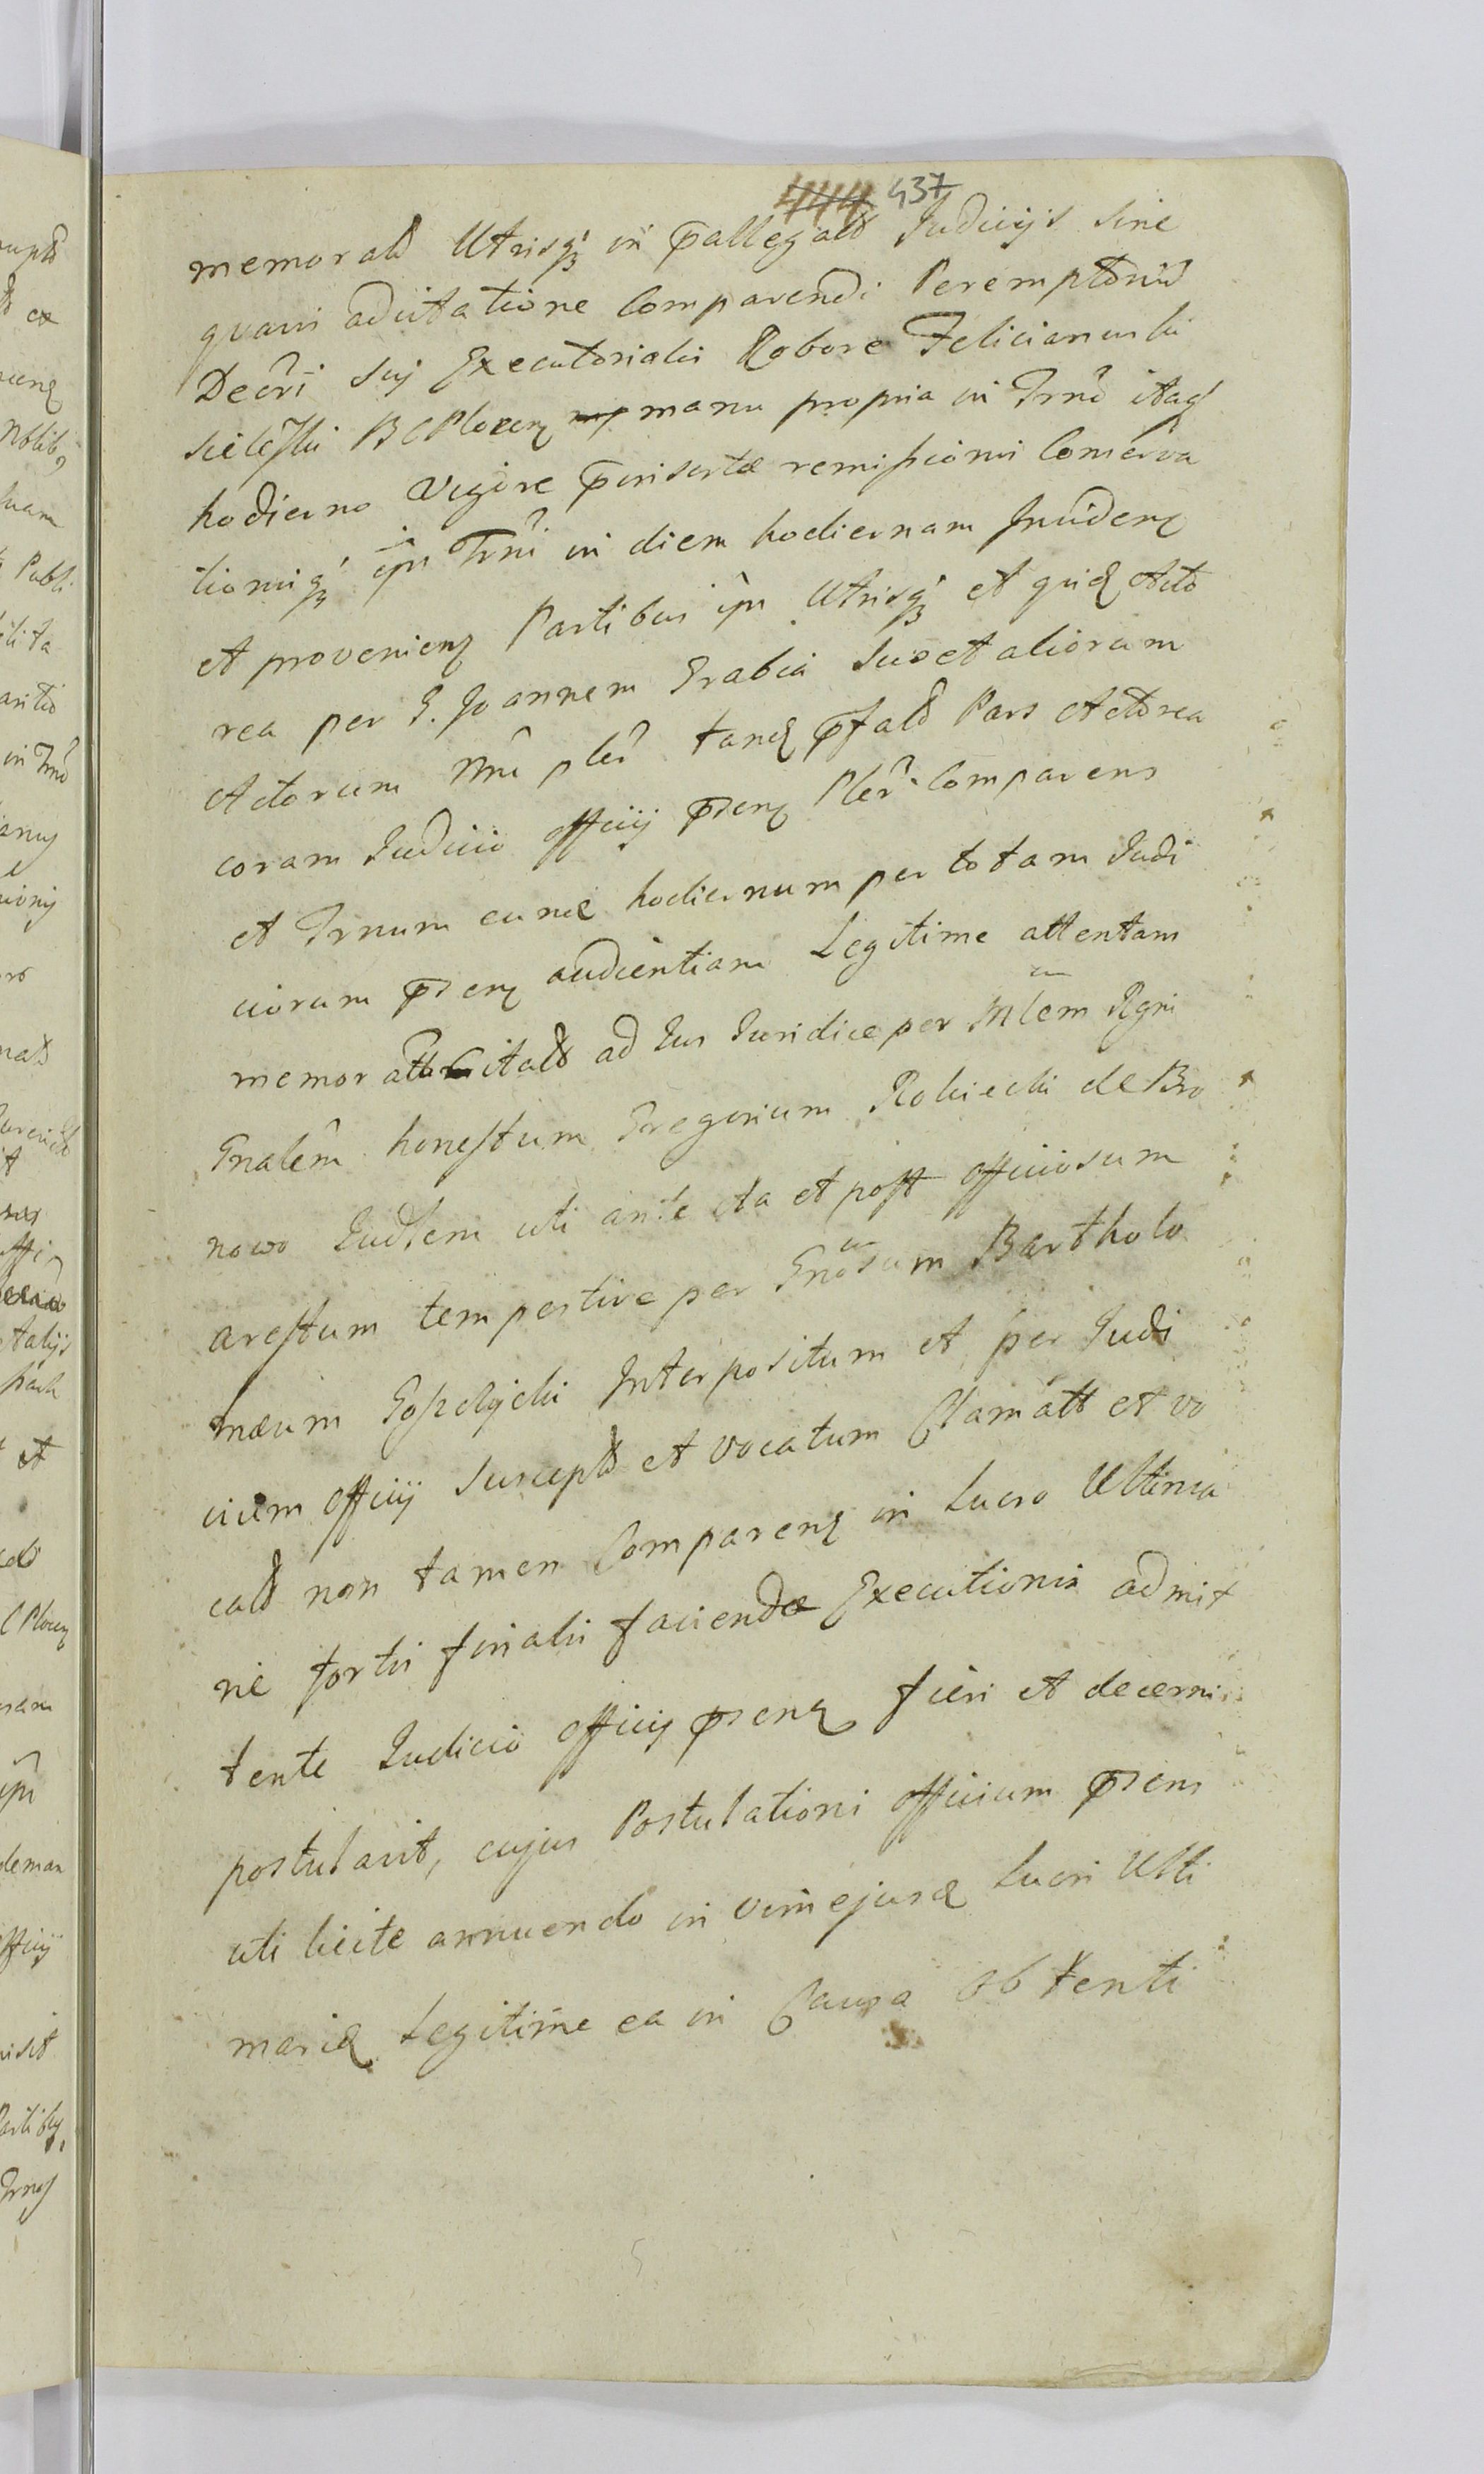 444 437
memorats Utrisq3 in pallegats Judicijs sine
quavis aditatione Comparendi Peremptorie
Decri sui Executorialis Robore Felicianus
BCPlocen manu propria in Trno itaq
hodierno Vigore pinsertæ remissionis Conserva
tionisq3 ipi Trni in diem hodiernam Inciden
et provenien Partibus ipis Utrisq3 et quid Acto
rea per G. Joannem Grabia suo et aliorum
Actorum Nne pler tand pfats Pars Actorea
coram Judicio Officij psen Pler Comparens
et Trnum eund hodiernum per totam Judi
ciorum psen audientiam Legitime attentam
memorat citats ad Jus Juridice per Mlem Rgni
Gnalem honestum Gregorium Rokicki de Bro
nowo Judlem uti ante ita et post officiosum
arestum tempestive per Gnosum Bartholo
mæum Interpositum et per Judi
cium Officij suscepts et vocatum Clamatt et vo
cats non tamen Comparen in Lucro Ultima
rie sortis finalis faciendæ Executionis admit
tente Judicio Officij psen fieri et decerni
postulavit, cujus Postulationi Officium psens
uti licite annuendo in vim ejusd Lucri Ulti
marie Legitime ea in Causa obtenti